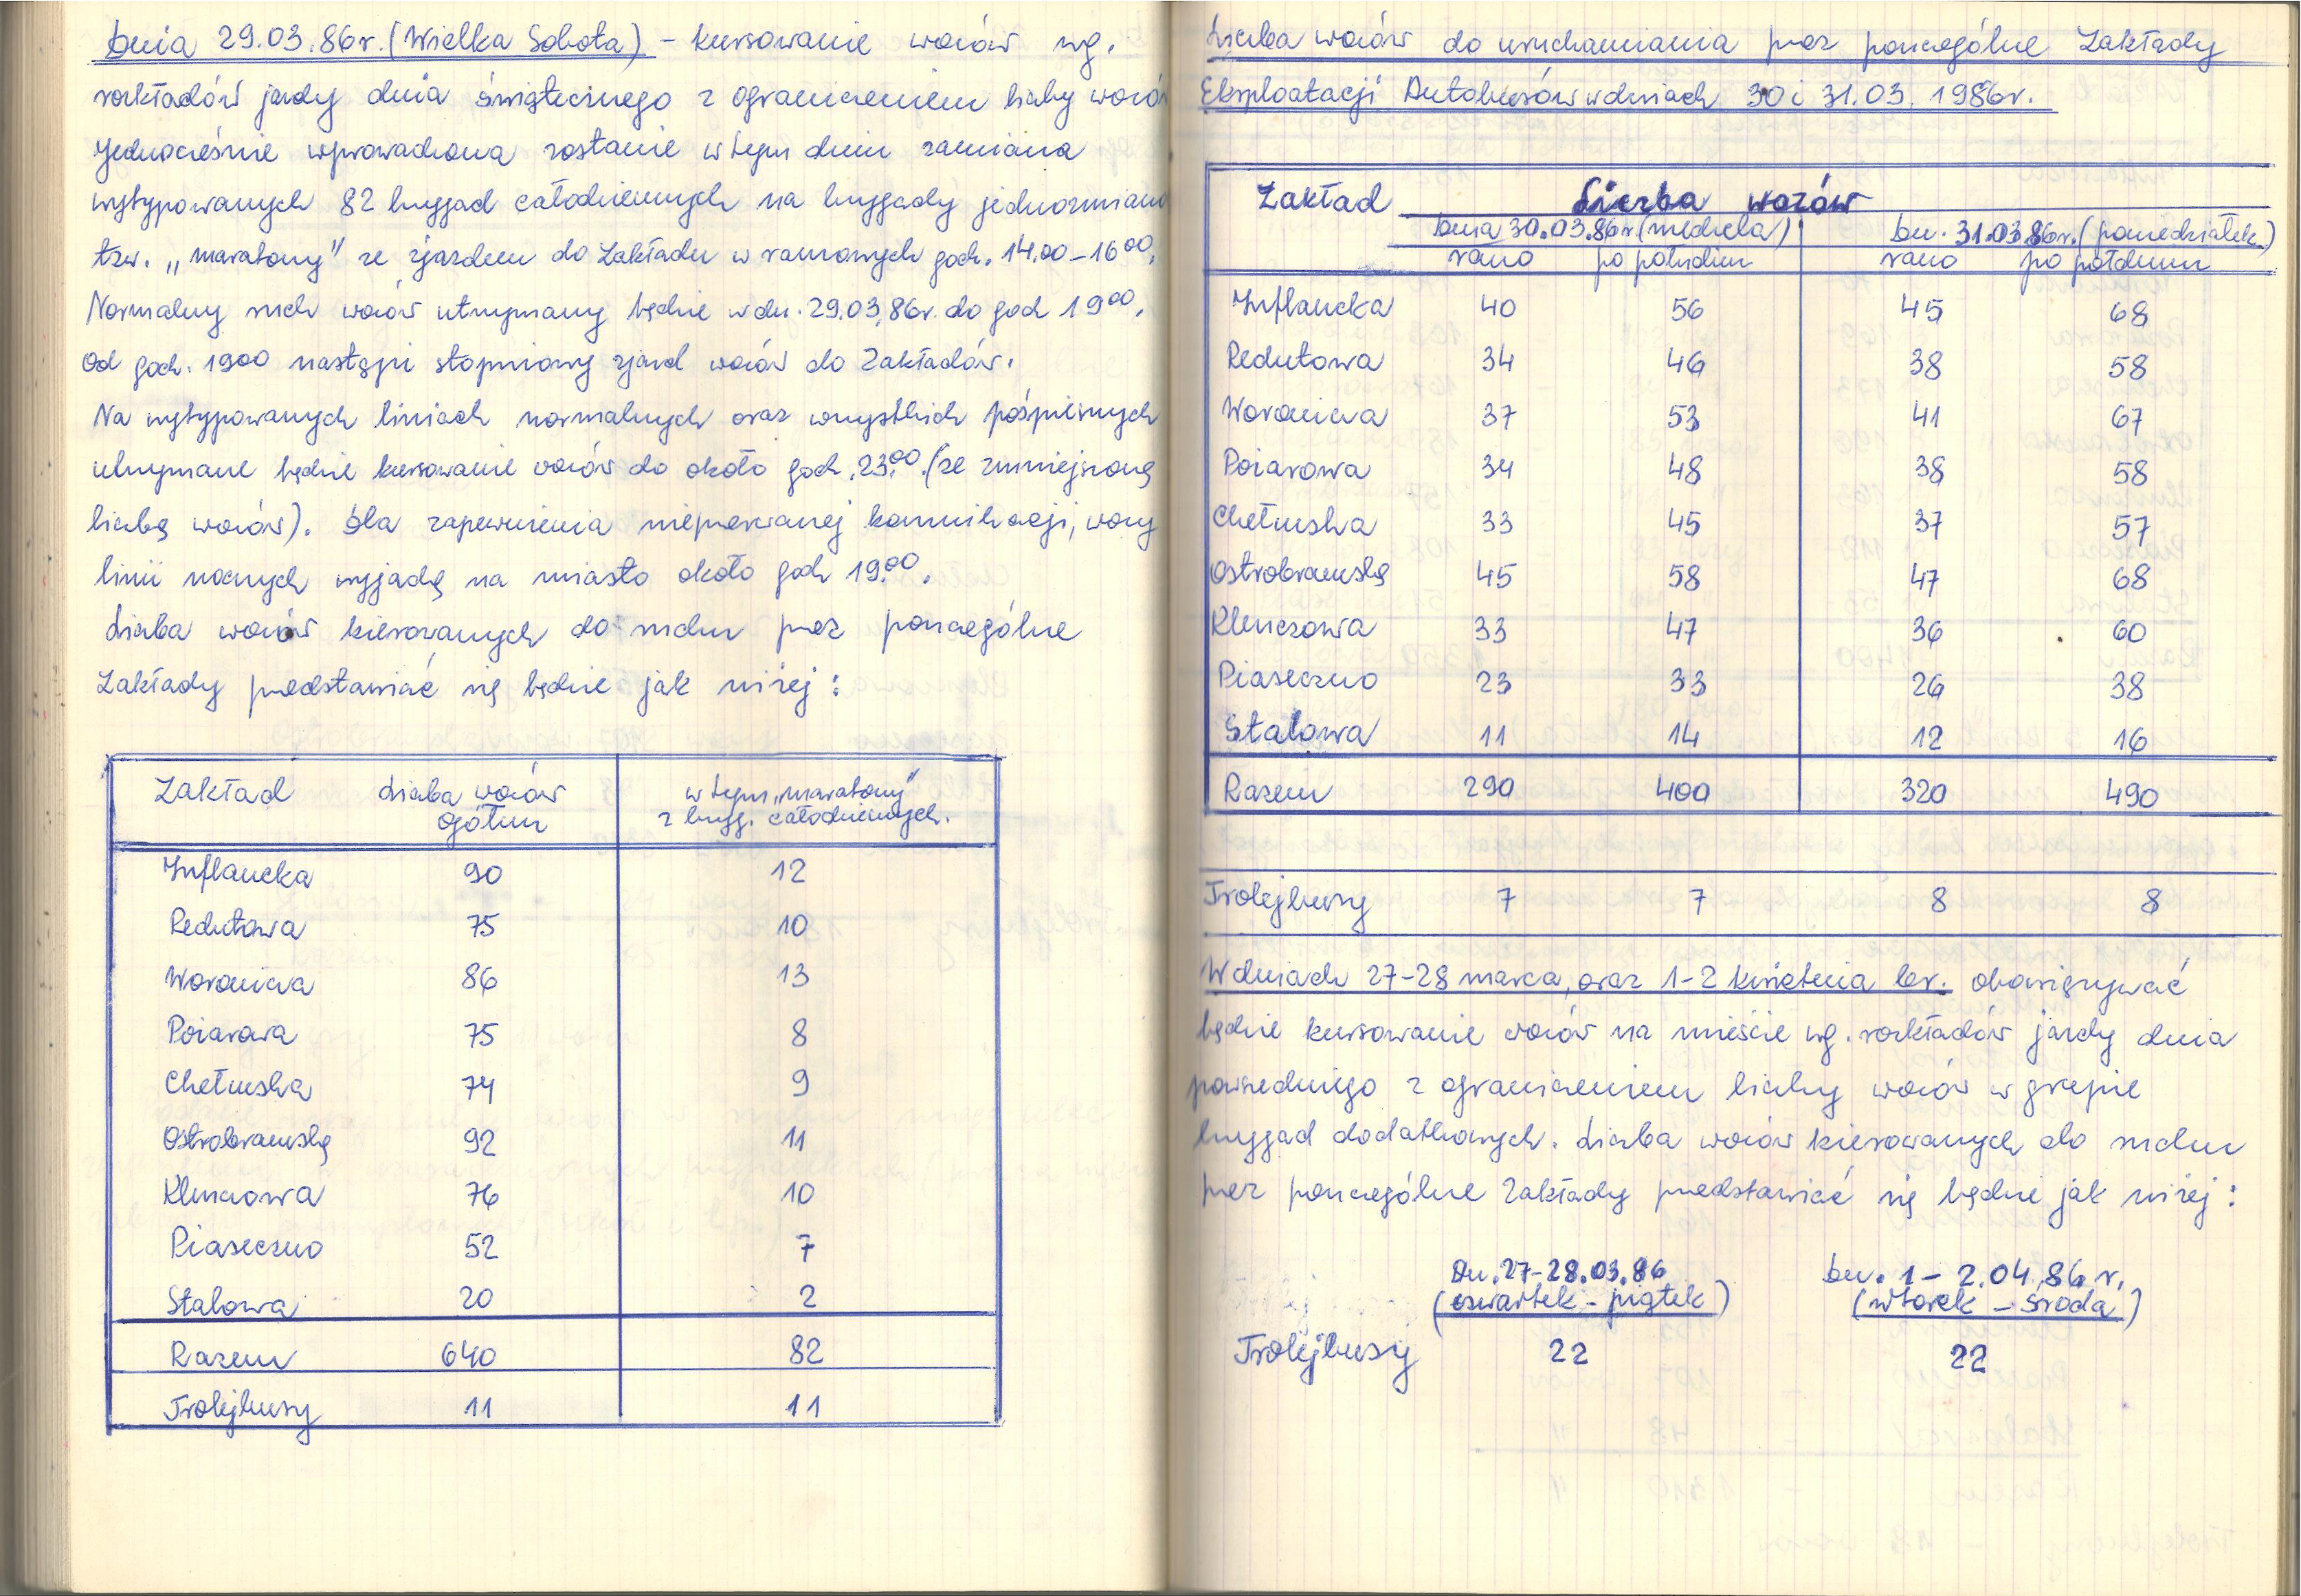 Dnia 29.03.86r. (Wielka Sobota) - kursowanie wozów wg.
rozkładów jazdy dnia świątecznego z ograniczeniem liczby wozów
Jednocześnie wprowadzona zostanie w tym dniu zamiana
wytypowanych 82 brygad całodziennych na brygady jednozmiano
tzw. „maratony" ze zjazdem do Zakładu w ramowych godz. 14.00-16⁰⁰.
Normalny ruch wozów utrzymany będzie w dn. 29.03.86r. do godz 19⁰⁰.
Od godz. 19⁰⁰ nastąpi stopniowy zjazd wozów do Zakładów.
Na wytypowanych liniach normalnych oraz wszystkich pośpiesznych
utrzymane będzie kursowanie wozów do około godz. 23⁰⁰. (ze zmniejszoną
liczbą wozów). Dla zapewnienia nieprzerwanej komunikacji, wozy
linii nocnych wyjadą na miasto około godz 19⁰⁰.
Liczba wozów kierowanych do ruchu przez poszczególne
Zakłady przedstawiać się będzie jak niżej:
Zakład Liczba wozów ogółem w tym „maratony" z bryg. całodziennych.
Inflancka 90 12
Redutowa 75 10
Woronicza 86 13
Pożarowa 75 8
Chełmska 74 9
Ostrobramską 92 11
Kleszczowa 76 10
Piaseczno 52 7
Stalowa 20 2
Razem 640 82
Trolejbusy 11 11
Liczba wozów do uruchamiania przez poszczególne Zakłady
Eksploatacji Autobusów w dniach 30 i 31.03.1986r.
Zakład Liczba wozów
Dnia 30.03.86r (niedziela) Dn. 31.03.86r. (poniedziałek)
rano po południu rano po południu
Inflancka 40 56 45 68
Redutowa 34 46 38 58
Woronicza 37 53 41 67
Pożarowa 34 48 38 58
Chełmska 33 45 37 57
Ostrobramską 45 58 47 68
Kleszczowa 33 47 36 60
Piaseczno 23 33 26 38
Stalowa 11 14 12 16
Razem 290 400 320 490
Trolejbusy 7 7 8 8
W dniach 27-28 marca, oraz 1-2 kwietnia br. obowiązywać
będzie kursowanie wozów na mieście wg. rozkładów jazdy dnia
powszedniego z ograniczeniem liczby wozów w grupie
brygad dodatkowych. Liczba wozów kierowanych do ruchu
przez poszczególne Zakłady przedstawiać się będzie jak niżej:
Dn. 27-28.03.86 Dn. 1-2.04.86 r.
(czwartek - piątek) (wtorek - środa)
Trolejbusy 22 22